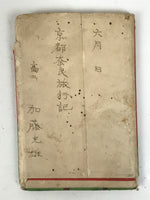 六月 日
京都奈良旅行記
加藤光雄